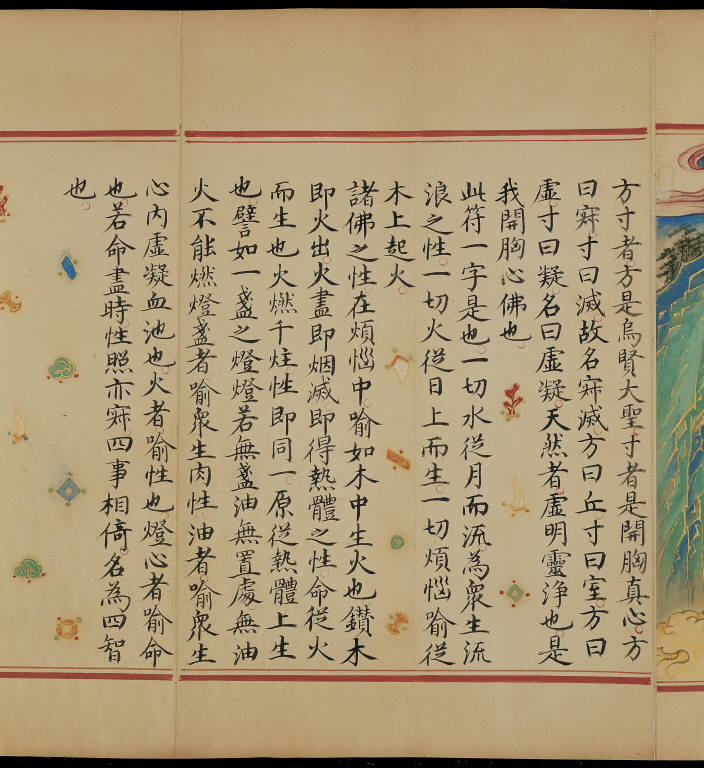 方寸者方是烏賢大聖寸者是開胸真心方
曰寂寸曰滅故名寂滅方曰丘寸曰室方曰
虛寸曰凝名曰虛凝天然者虛明靈浄也是
我開胸心佛也
此符一字是也一切水從月而流為衆生流
浪之性一切火從日上而生一切煩惱喻從
木上起火
諸佛之性在煩惱中喻如木中生火也鑽木
即火出火盡即烟滅即得熱體之性命從火
而生也火燃千炷性即同一原從熱體上生
也譬如一盞之燈燈若無盞油無置處無油
火不能燃燈盞者喻衆生肉性油者喻衆生
心內虛凝血池也火者喻性也燈心者喻命
也若命盡時性照亦寂四事相倚名為四智
也